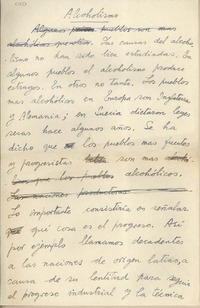 Alcoholismo
Algunos pueblos son mas
Las causas del alcoho-
lismo no han sido bien estudiadas. En
algunos pueblos el alcoholismo produce
estragos. En otro no tanto. Los pueblos
mas alcoholicos en Europa son Inglaterra
y Alemania; en Suecia dictaron leyes
secas hace algunos años. Se ha
dicho que los pueblos mas fuertes
y progresistas son mas
los pueblos alcohólicos.
Las naciones productoras
Lo importante consistiria en señalar
que cosa es el progreso. Asi
por ejemplo llamamos decadentes
a las naciones de origen latino, a
causa de su lentitud para seguir
el progreso industrial y la técnica